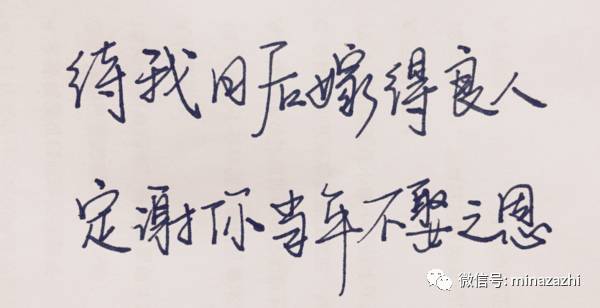 待我日后嫁得良人
定谢你当年不娶之恩
微信号: minazazhi